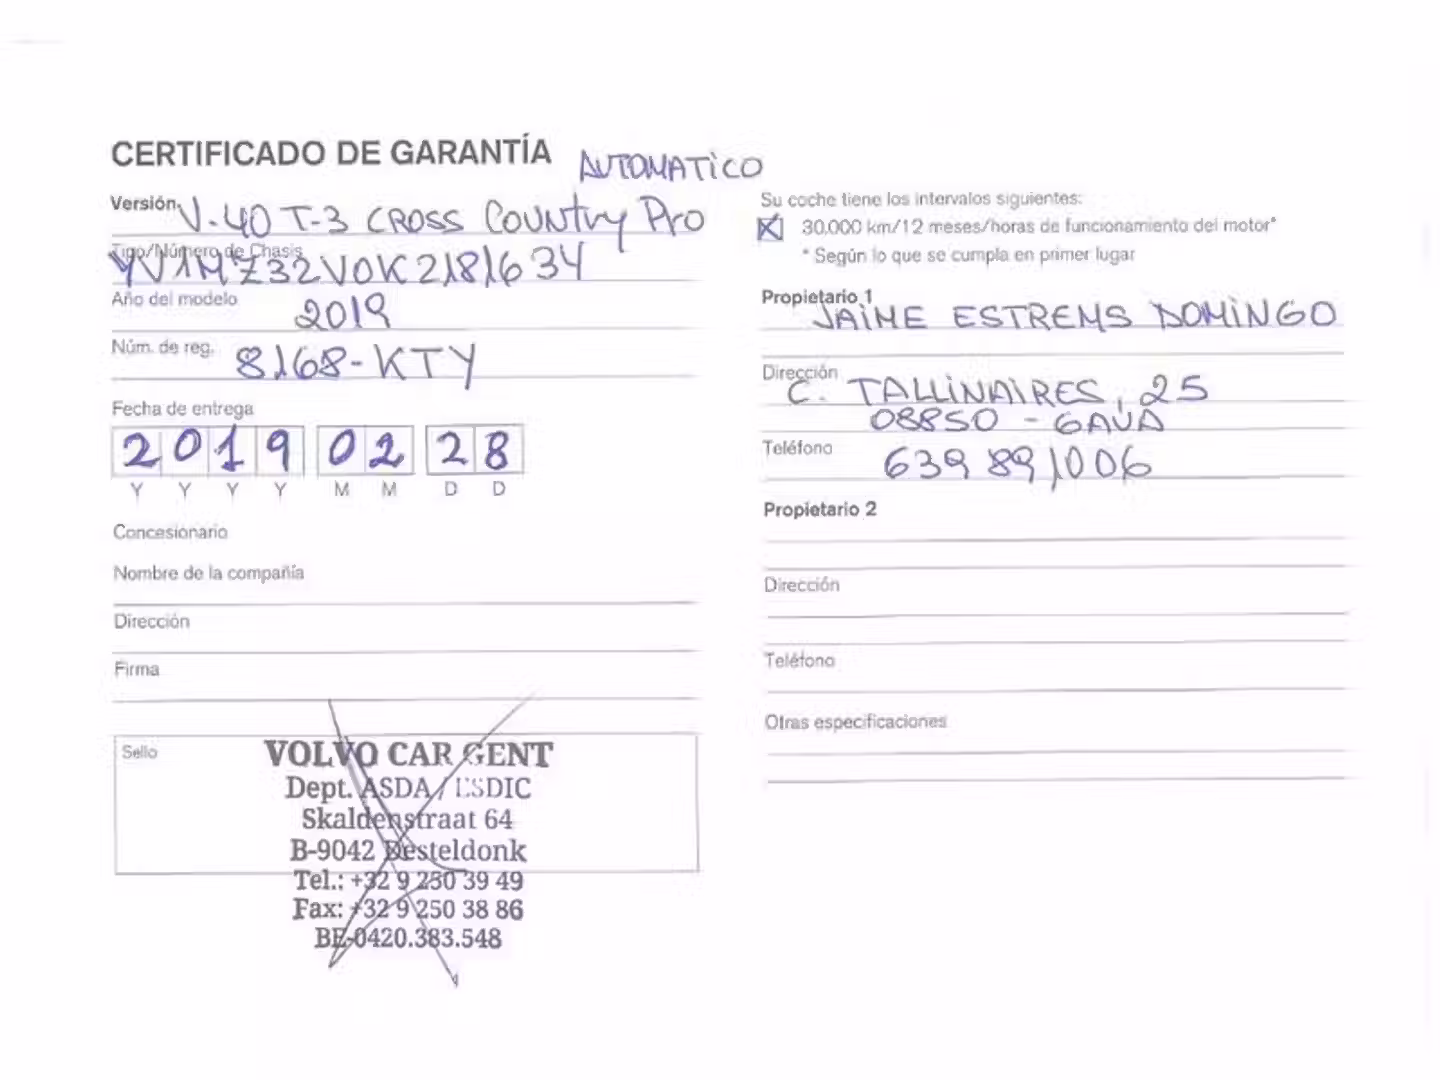 CERTIFICADO DE GARANTÍA
AUTOMATICO
Versión V-40 T-3 CROSS COUNTRY PRO
Tipo/Número de Chasis
YV1MZ32V0K2181634
Año del modelo 2019
Núm. de reg. 8168-KTY
Fecha de entrega
2 0 1 9 0 2 2 8
Y Y Y Y M M D D
Concesionario
Nombre de la compañía
Dirección
Firma
Sello
VOLVO CAR GENT
Dept. ASDA / ESDIC
Skaldenstraat 64
B-9042 Desteldonk
Tel.: +32 9 250 39 49
Fax: +32 9 250 38 86
BE-0420.383.548
Su coche tiene los intervalos siguientes:
30.000 km/12 meses/horas de funcionamiento del motor*
* Según lo que se cumpla en primer lugar
Propietario 1
JAIME ESTREMS DOMINGO
Dirección
C. TALLINAIRES, 25
08850 - GAVA
Teléfono 639 891006
Propietario 2
Dirección
Teléfono
Otras especificaciones